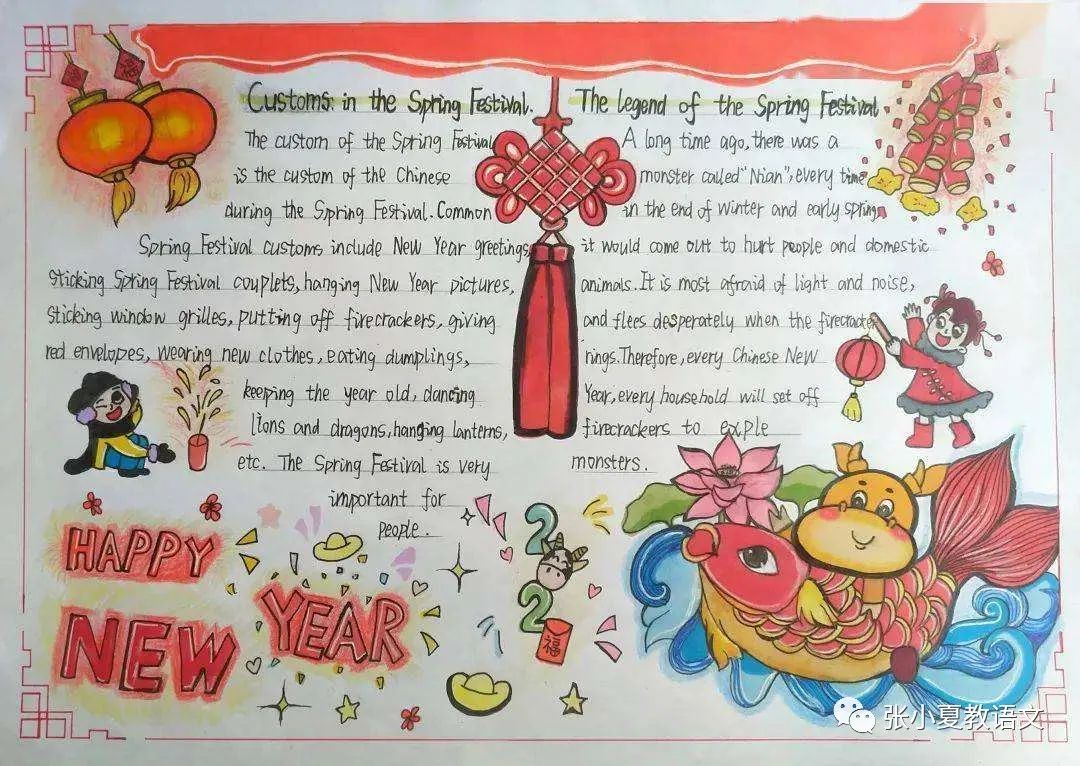 Customs: in the Spring Festival.
The custom of the Spring Festival
is the custom of the Chinese
during the Spring Festival. Common
Spring Festival customs include New Year greetings,
sticking Spring Festival couplets, hanging New Year pictures,
sticking window grilles, putting off firecrackers, giving
red envelopes, wearing new clothes, eating dumplings,
keeping the year old, dancing
lions and dragons, hanging lanterns,
etc. The Spring Festival is very
important for
people.
The legend of the Spring Festival
A long time ago, there was a
monster called "Nian", every time
in the end of winter and early spring,
it would come out to hurt people and domestic
animals. It is most afraid of light and noise,
and flees desperately when the firecracker
rings. Therefore, every Chinese New
Year, every household will set off
firecrackers to exple
monsters.
HAPPY
NEW
YEAR
2
2
福
张小夏教语文